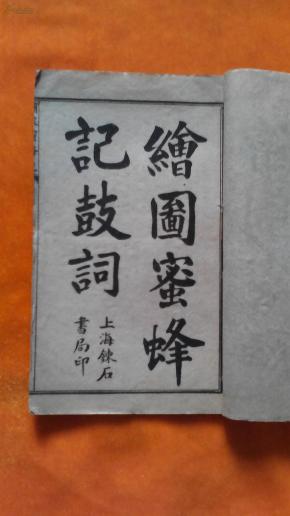 繪圖蜜蜂
記鼓詞
上海錬石
書局印